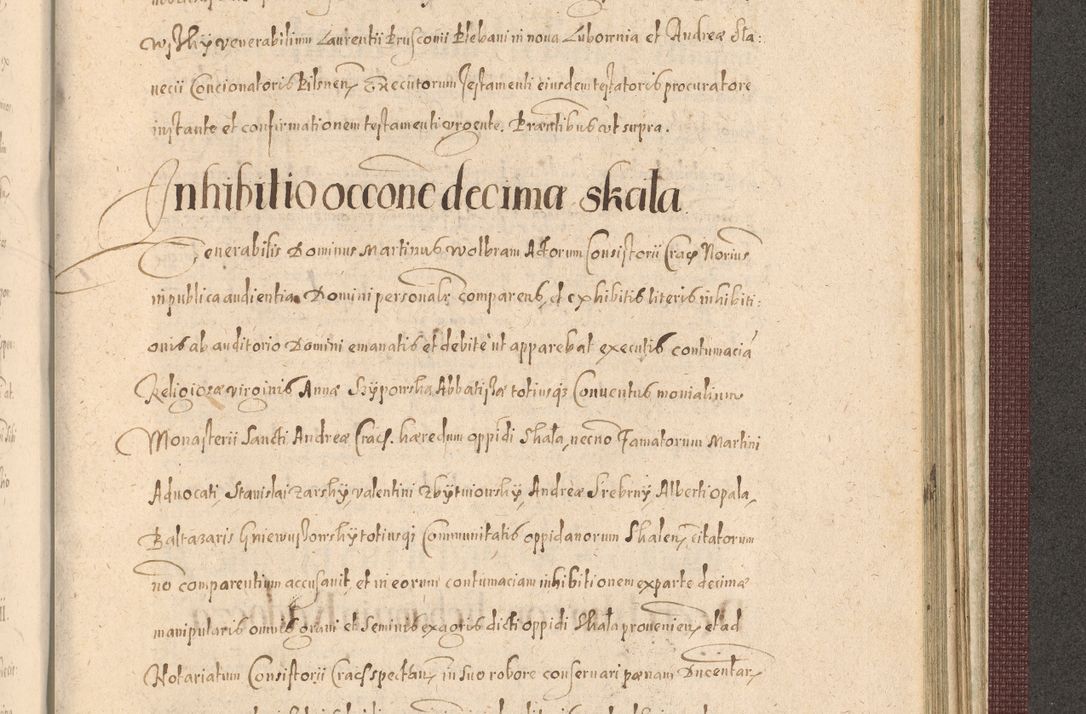 wsky venerabilium Laurentii Prusconii Plebani in nova Lubomnia et Andreæ Sta:
necii Concionatoris Pilsnen, Executorum Testamenti eiusdem testatoris procuratore
instante et confirmationem testamenti urgente. Præntibus vt supra.
Inhibitio occõne decimæ skała
Venerabilis Dominus Martinus Wolbram Actorum Consistorii Crac Norius
in publica audientia Domini personalr comparens, et exhibitis literis inhibiti:
onis ab auditorio Domini emanatis et debite ut apparebat executis contumaciã
Religiosæ virginis Annæ Szyporska Abbatissæ totiusq3 Conuentus monialium
Monasterii Sancti Andreæ Crac. hæredum oppidi Skała, necno Famatorum Martini
Aduocati, Stanislai Zarsky, Valentini Zbytniowsky, Andreæ Srebrny, Alberti Opala,
Baltazaris Gniewussowsky totiusq3 Communitatis oppidanorum Skalen, citatorum
nõ comparentium accusauit, et in eorum contumaciam inhibitionem ex parte decimæ
manipularis omnis grani et Seminis ex agris dicti oppidi Skała prouenien, et ad
Notariatum Consistorii Crac spectan, in suo robore conseruari pænam Ducentar,